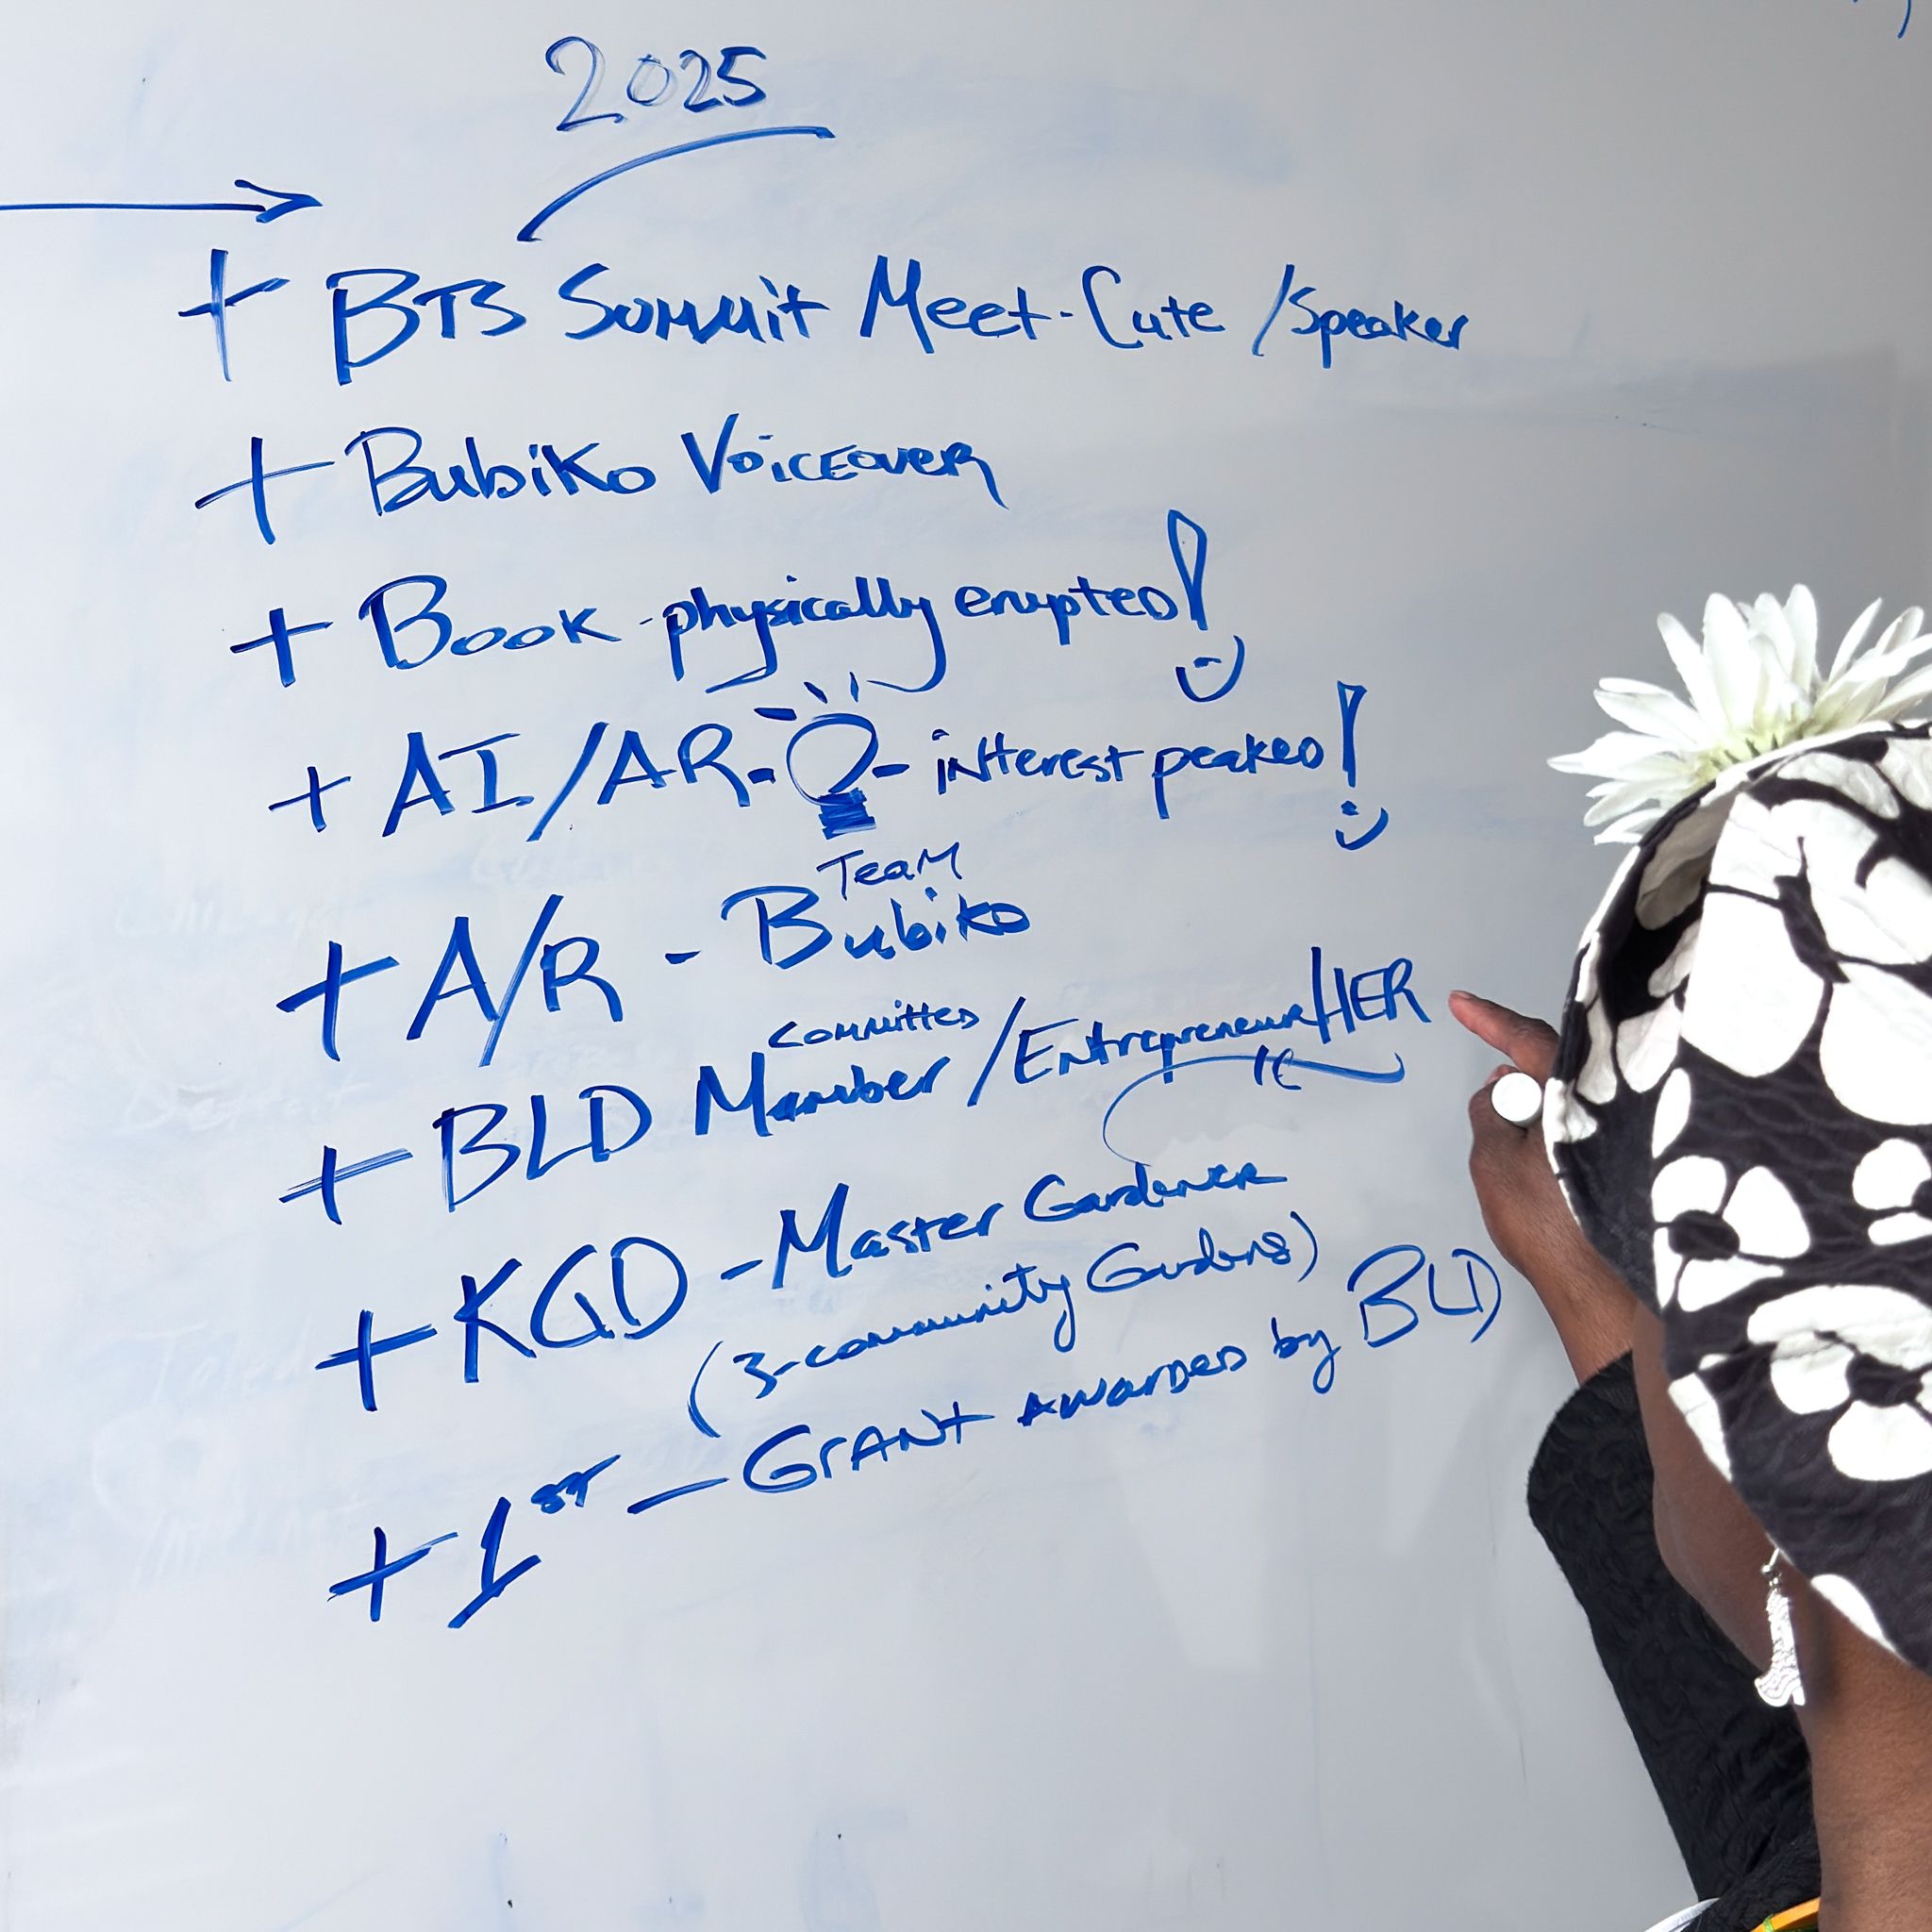 2025
+ BTS Summit Meet-Cute /Speaker
+ Bubiko Voiceover
+ Book - physically erupted!
+ AI/AR - - interest peaked!
+ A/R - Team Bubiko
+ BLD Committed Member /EntrepreneurHER
1C
+ KGD - Master Gardener
(3-community Gardens)
+ 1st - Grant awarded by BLD